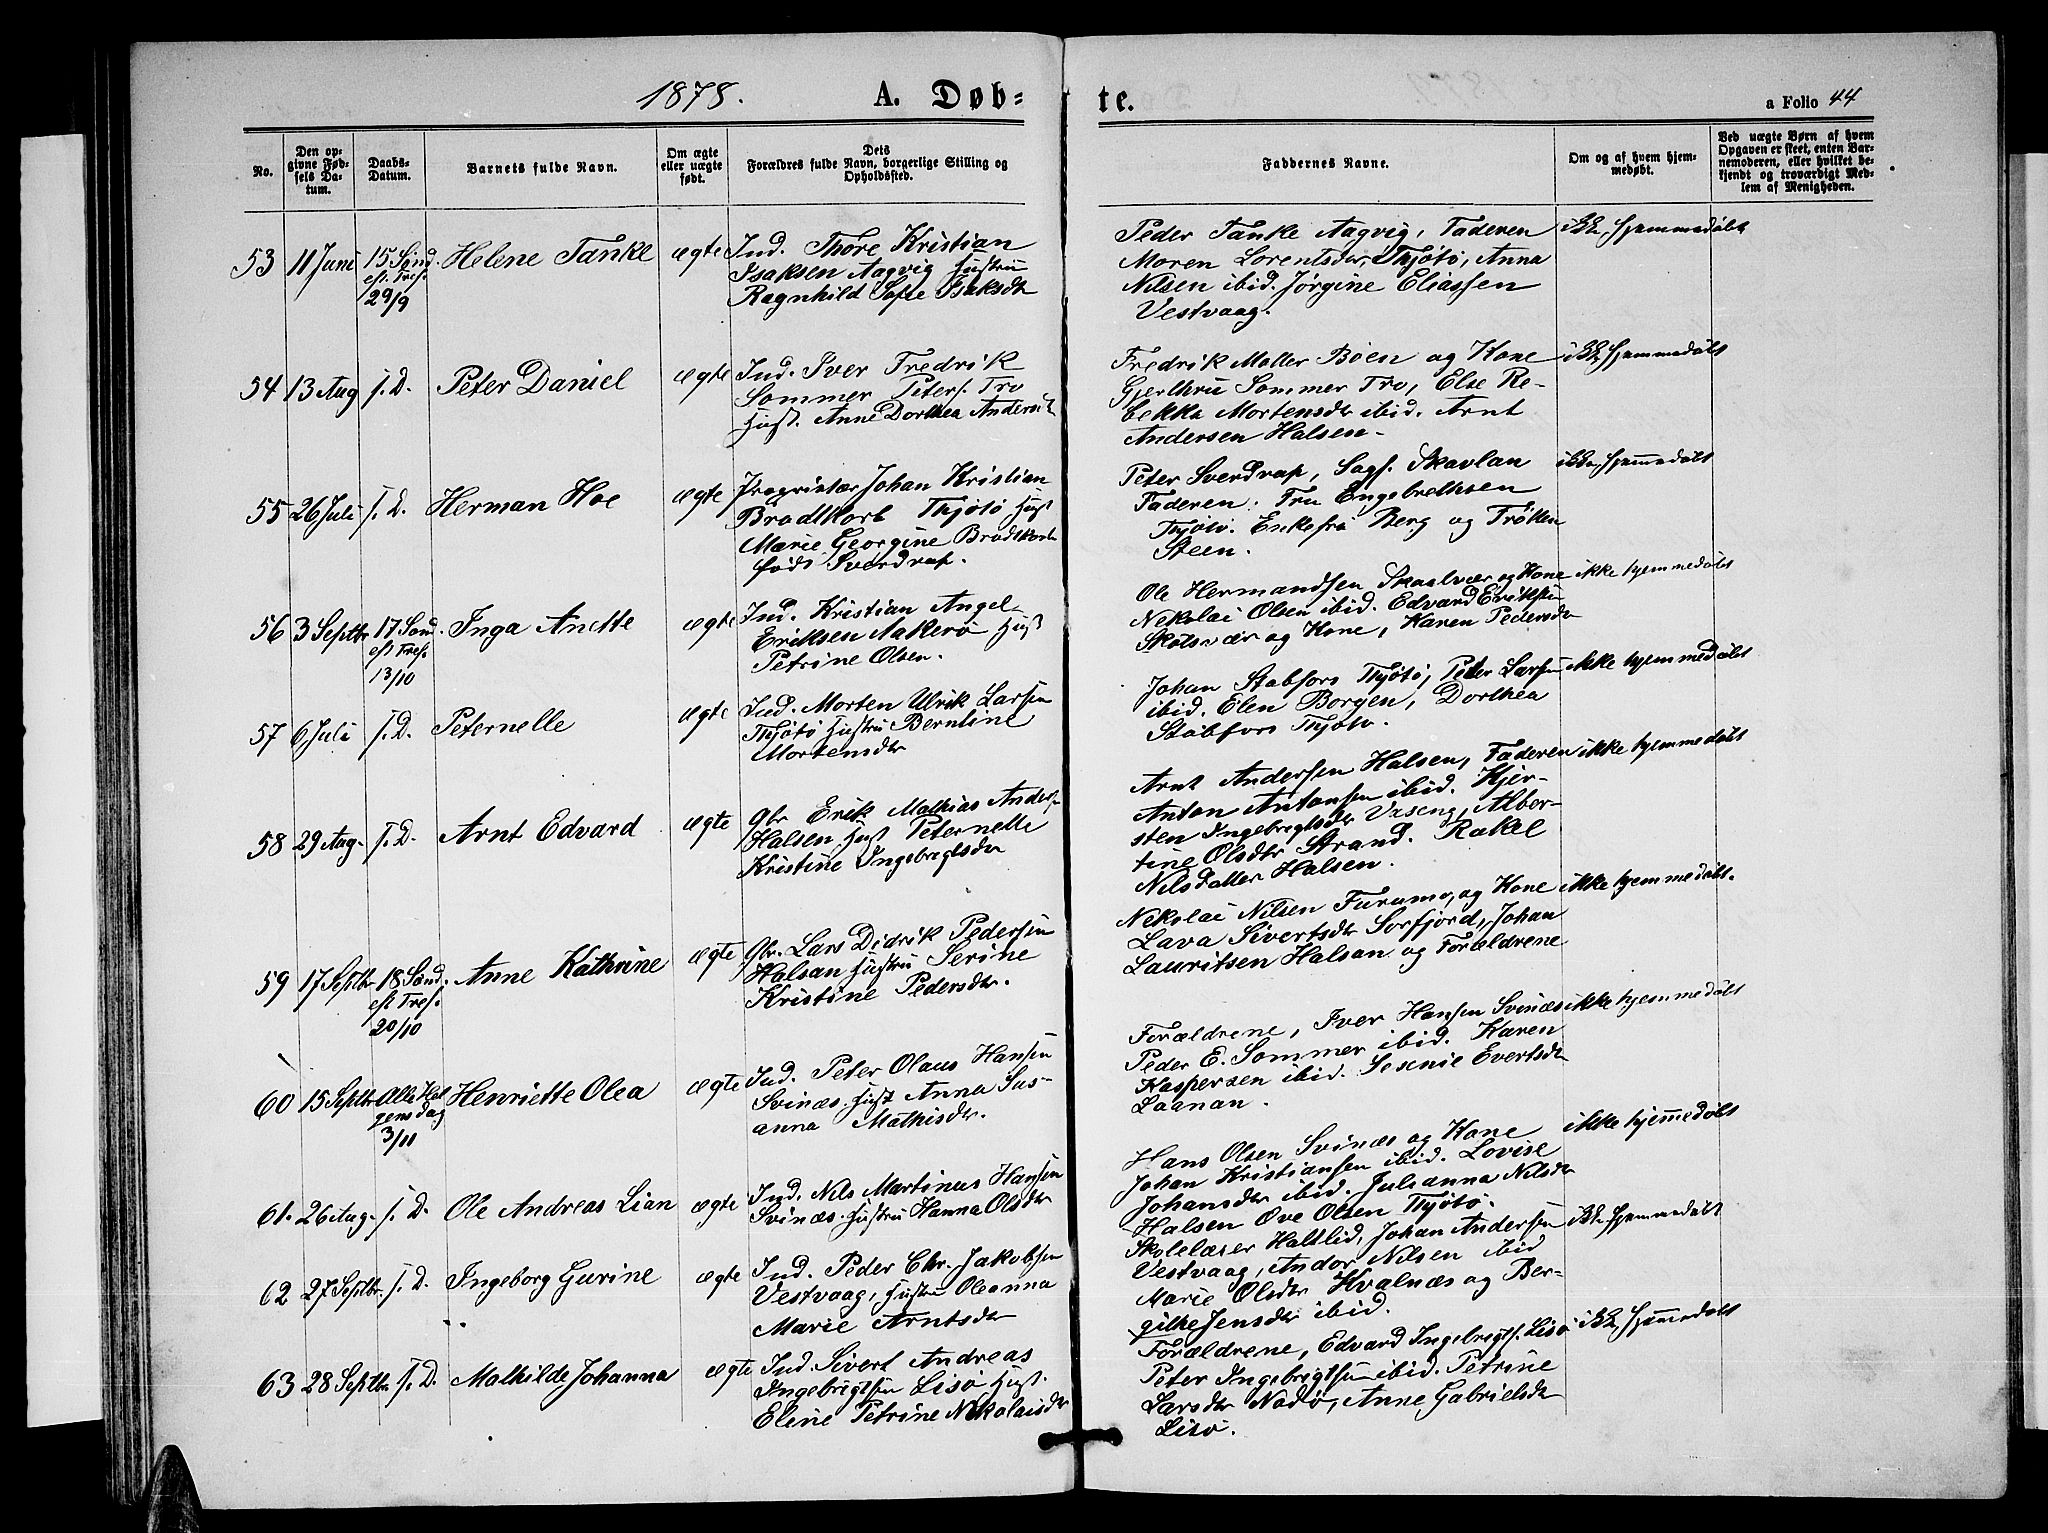 1878.
A. Døb-
te.
a Folio 44
No.
Den op-
givne Fød-
sels Da-
tum.
Daabs-
Datum.
Barnets fulde Navn.
Om ægte
eller uægte
født.
Dets
Forældres fulde Navn, borgerlige Stilling og
Opholdssted.
Faddernes Navne.
Om og af hvem hjem-
medøbt.
Ved uægte Børn af hvem
Opgaven er skeet, enten Bar-
nemoderen, eller hvilket be-
kjendt og troværdigt Med-
lem af Menigheden.
53 11 Juni 15 Sønd.
eft. Tref.
29/9
Helene Tanke
ægte
Ind. Thore Kristian
Isaksen Aagvig Hustru
Ragnhild Sofie Isaksdr
Peder Tanke Aagvig, Faderen
Maren Lorentsdr, Thjøtø, Anna
Nilsen ibid. Jørgine Eliassen
Vestvaag.
ikke hjemmedøbt
54 13 Aug s. D. Peter Daniel
ægte
Ind. Iver Fredrik
Sommer Peters. Tro
Hust. Anne Dorthea Andersdr
Fredrik Møller Bøen og Kone
Gjerthru Sommer Tro, Else Re-
bekka Mortensdr ibid. Arnt
Andersen Halsen.
ikke hjemmedøbt
55 26 Juli s. D. Herman Hoe
ægte
Proprietær Johan Kristian
Brodtkorb Thjøtø Hust
Marie Georgine Brodtkorb
født Sverdrup.
Peter Sverdrup, Sagf. Skavlan
Faderen. Fru Engebrethsen
Thjøtø. Enkefru Berg og Frøken
Steen.
ikke hjemmedøbt
56 3 Septbr 17 Sønd.
eft Tref.
13/10
Inga Anette
ægte
Ind. Kristian Angel
Eriksen Aakerø Hust
Petrine Olsen.
Ole Hermandsen Skaalvær og Kone
Nekolai Olsen ibid. Edvard Eriksen
Skotsvær og Kone, Karen Pedersdr
ikke hjemmedøbt
57 6 Juli s. D. Peternelle
ægte
Ind. Morten Ulrik Larsen
Thjøtø Hustru Berntine
Mortensdr
Johan Stabfors Thjøtø, Peter Larsen
ibid. Elen Borgen, Dorthea
Stabfors Thjøtø.
ikke hjemmedøbt
58 29 Aug. s. D. Arnt Edvard
ægte
Gbr Erik Mathias Anders
Halsen Hust Peternelle
Kristine Ingebregtsdr
Arnt Andersen Halsen, Faderen
Anton Antonsen ibid. Kjer-
sten Ingebregtsdr Viseng, Alber-
tine Olsdtr Strand. Rakel
Nilsdatter Halsen.
ikke hjemmedøbt
59 17 Septbr 18 Sønd.
eft Tref.
20/10
Anne Kathrine
ægte
Gbr. Lars Didrik Pedersen
Halsan Hustru Serine
Kristine Pedersdr.
Nekolai Nilsen Furumo, og Kone
Lava Sivertsdr Sørfjord, Johan
Lauritsen Halsan og Forældrene
ikke hjemmedøbt.
60 15 Septbr Alle Hel
gens dag
3/11
Henriette Olea
ægte
Ind. Peter Olaus Hansen
Svinæs. Hust Anna Sus-
anna Mathisdr.
Forældrene, Iver Hansen Svinæs
Peder E. Sommer ibid. Karen
Kaspersen ibid. Evertsdr
Laanan.
ikke hjemmedøbt
61. 26 Aug. s. D. Ole Andreas Lian
ægte
Ind. Nils Martinus Hansen
Svinæs. Hustru Hanna Olsdr
Hans Olsen Svinæs og Kone
Johan Kristiansen ibid. Lovise
Johansdr ibid. Julianna Nilsdr
Halsen Ove Olsen Thjøtø.
ikke hjemmedøbt
62 27 Septbr. s. D. Ingeborg Gurine
ægte
Ind. Peder Chr. Jakobsen
Vestvaag, Hustru Oleanna
Marie Arntsdr
Skolelærer Haltlid, Johan Andersen
Vestvaag, Andor Nilsen ibid
Marie Olsdr Kvalnæs og Ber-
gitte Jensdr ibid.
ikke hjemmedøbt
63 28 Septbr s. D. Mathilde Johanna
ægte
Ind. Sivert Andreas
Ingebrigtsen Lisø Hust.
Eline Petrine Nikolaisdr
Forældrene, Edvard Ingebregts. Lisø
Peter Ingebregtsen ibid. Petrine
Larsdr Nodø, Anne Gabrielsdr
Lisø.
ikke hjemmedøbt